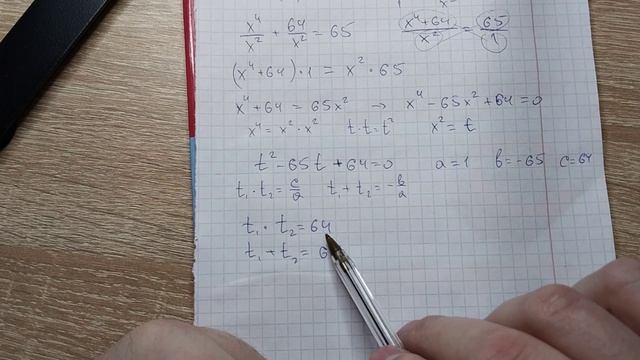 x⁴/x² + 64/x² = 65   (x⁴+64)/x² = 65/1
(x⁴+64)·1 = x²·65
x⁴+64 = 65x² → x⁴−65x²+64=0
x⁴ = x²·x²   t·t=t²   x² = t
t²−65t+64=0   a=1   b=−65   c=64
t₁·t₂=c/a   t₁+t₂=−b/a
t₁·t₂=64
t₁+t₂=6